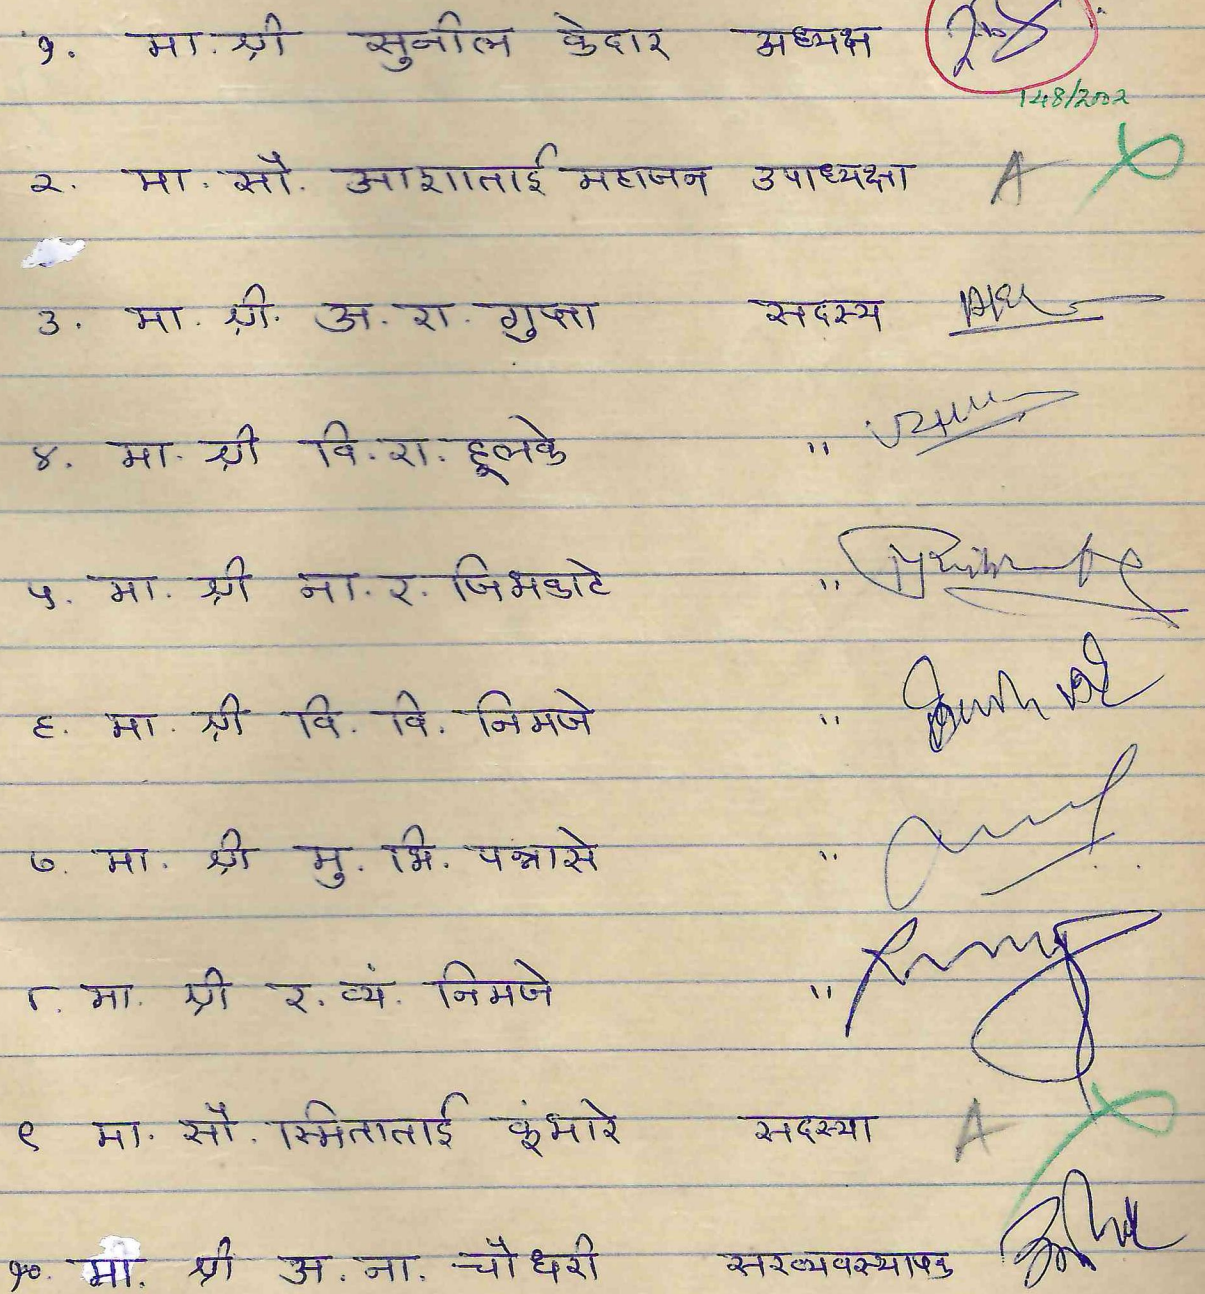 १. मा. श्री सुनील केदार अध्यक्ष
148/2002
२. मा. सौ. आशाताई महाजन उपाध्यक्षा A
३. मा. श्री. अ. रा. गुप्ता सदस्य
४. मा. श्री वि. रा. हूलके "
५. मा. श्री ना. र. जिभकाटे "
६. मा. श्री वि. वि. निमजे "
७. मा. श्री मु. भि. पन्नासे "
८. मा. श्री र. व्यं. निमजे "
९ मा. सौ. स्मिताताई कूंभारे सदस्या A
१०. मा. श्री अ. ना. चौधरी सरव्यवस्थापक